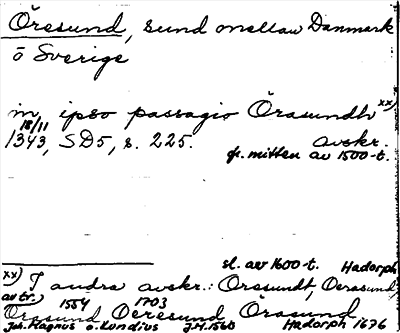 Öresund, sund mellan Danmark
o Sverige
in ipso passagio Örasundh xx)
18/11
1343, SD5, s. 225. avskr.
fr. mitten av 1500-t.
sl. av 1600-t. Hadorph
xx) I andra avskr.: Orssundt, Oerasund
avtr.) 1554 1703
Orssund Oeresund Örasund
Joh. Magnus o. Lundius J.M. 1560 Hadorph 1676